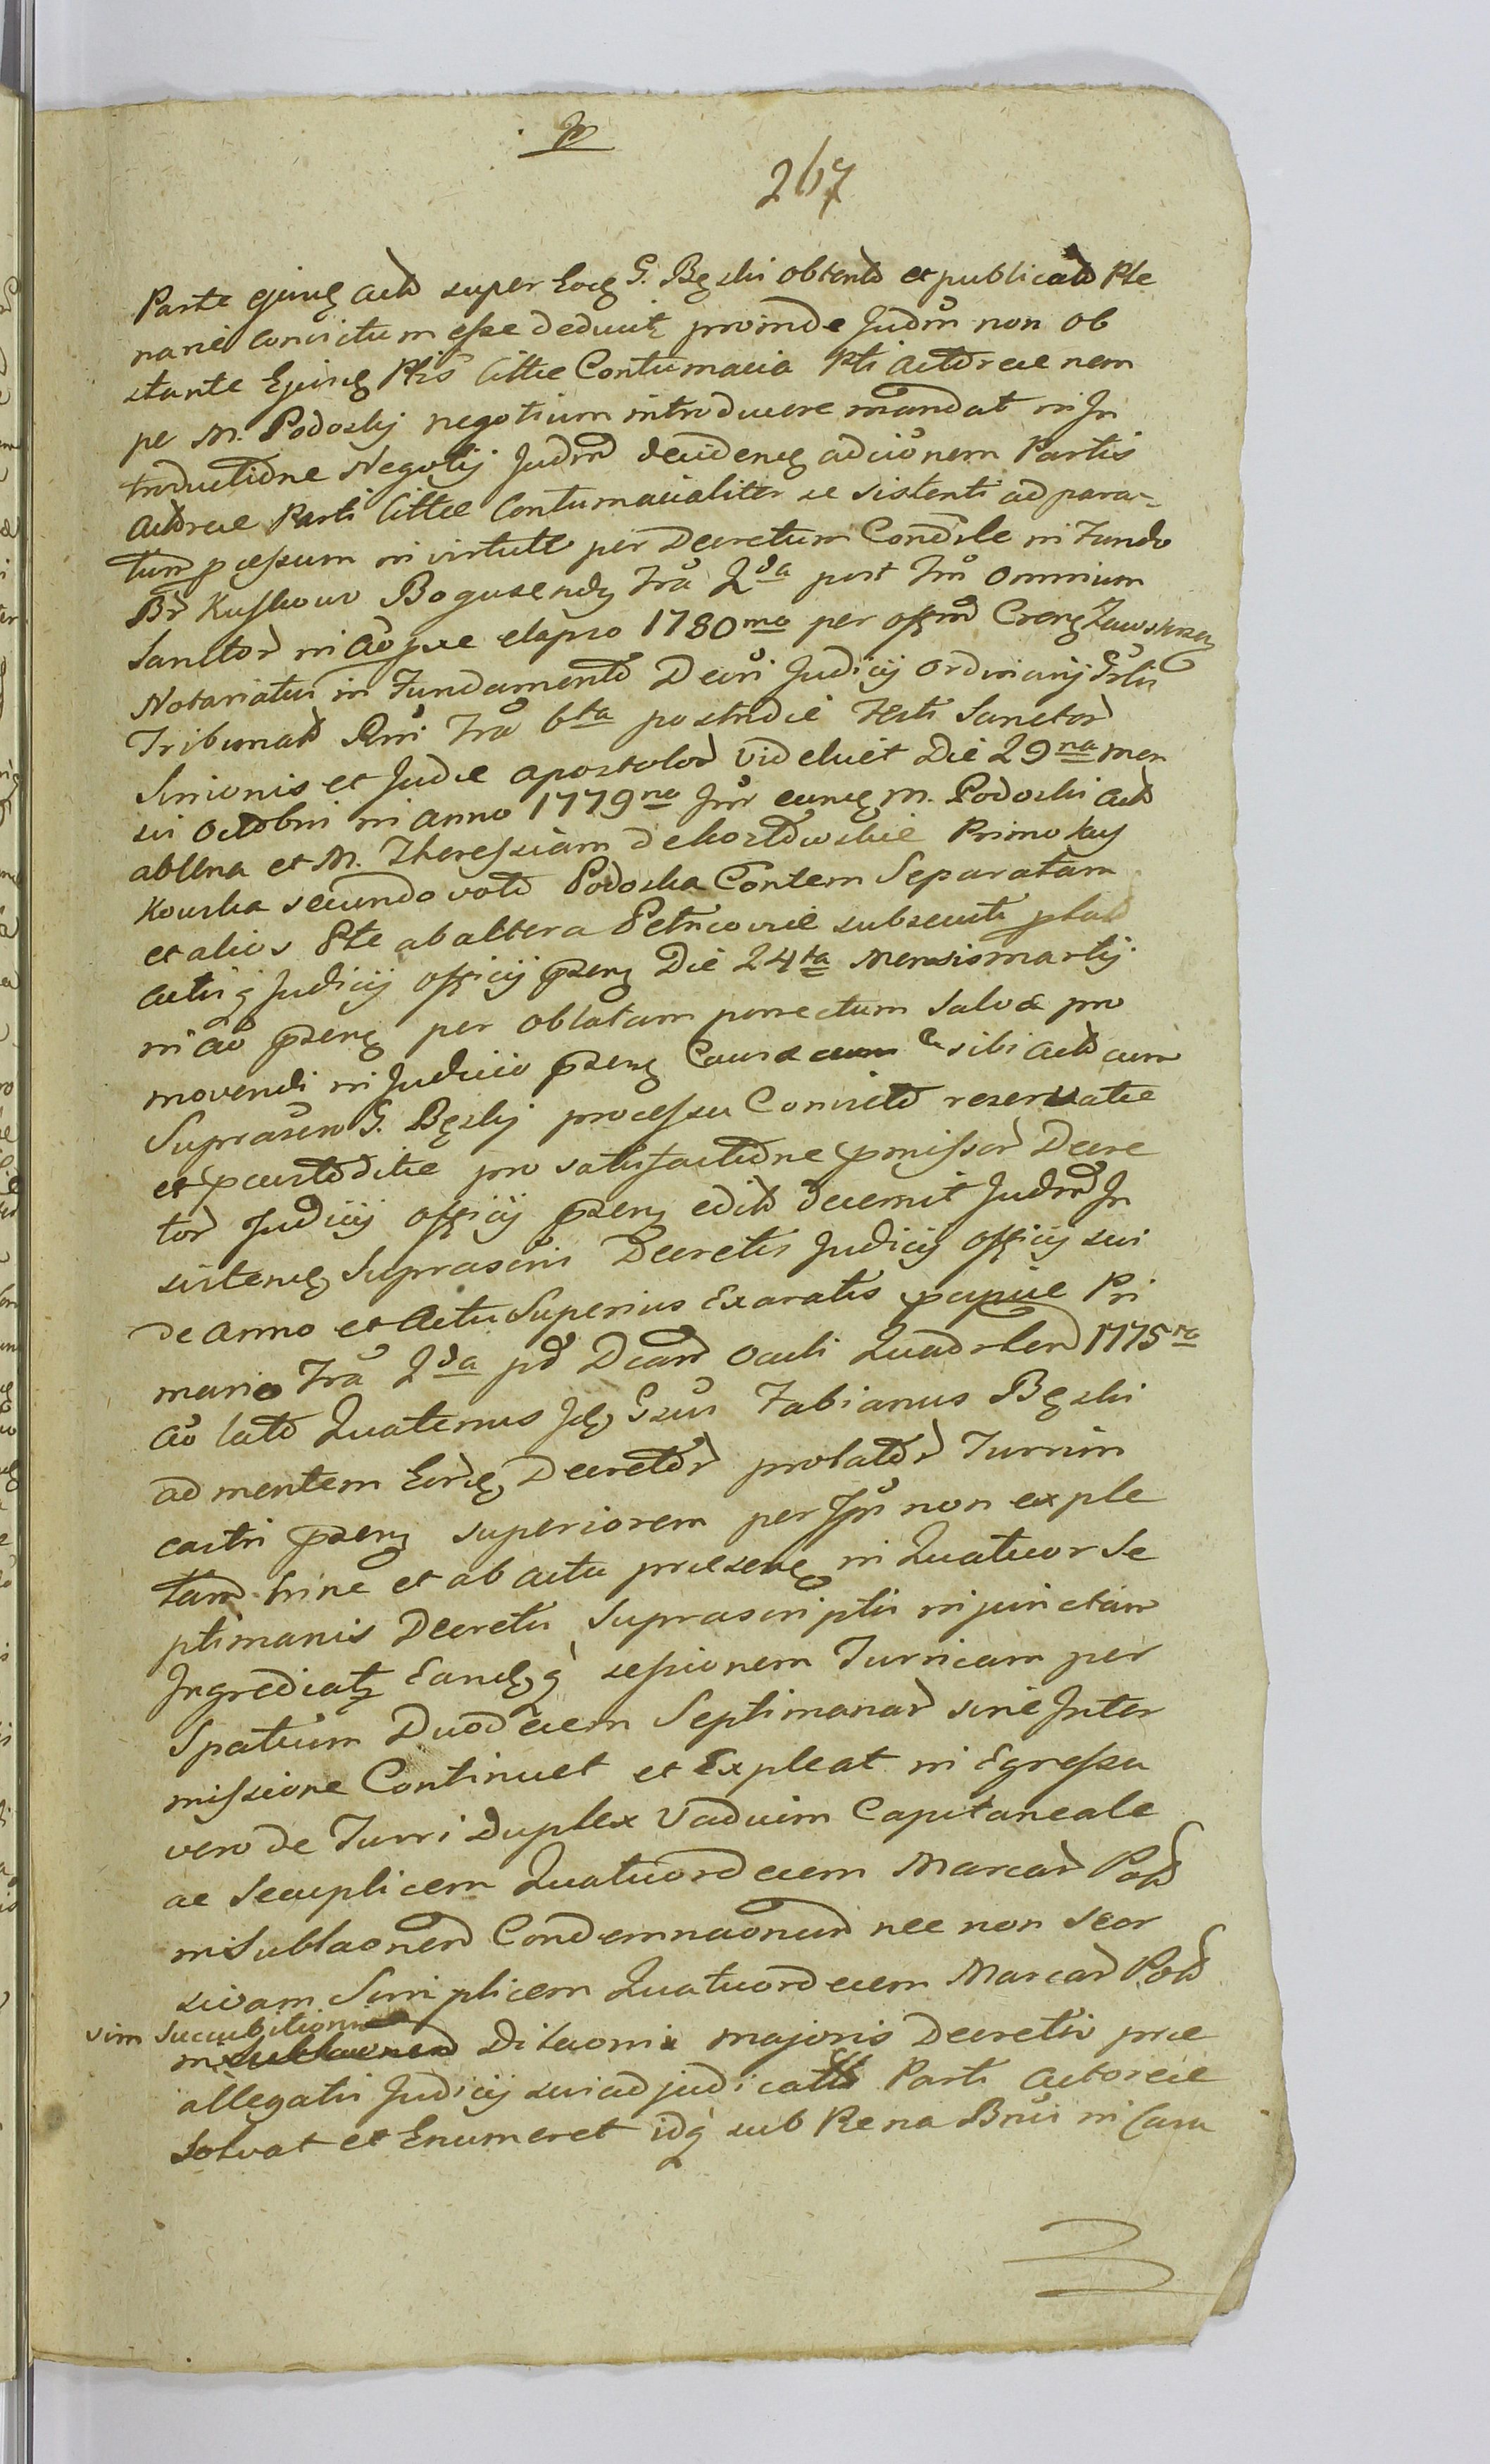 267
Parte ejusd act super eod G. Bęski obtent et publicat Ple
narie convictum esse deducit proinde Judm non ob
stante Ejusd Ptis Cittae Contumacia Pti actoreae nem
pe M. Podoskij negotium introducere mandat in In
troductione Negotij Judm decidend adcionem Partis
actoreae Parti Cittae Contumacialiter se sistenti ad para-
tum pcessum in virtute per Decretum Condile in Fundo
Br Kuskow Boguszendz Fra 2da post Fm Omnium
Sanctor in Ao pae elapso 1780mo per offm Crens Zawskrzen
Notariatus in Fundamento Decri Judicij ordinarij Grlis
Tribunat Rni Fra 6ta postridie Festi Sanctor
Simonis et Judae apostolor videlicet Die 29na men
sis octobris in anno 1779no Inr eund M. Podoski act
ab Una et M. Theressiam de Kozłowskie Primo Kar
Kowska secundo voto Podoska Contem Separatam
et alios Pte ab altera Petricoviae subsecuti plat
actisq Judicij officij pzens Die 24ta Mensis martij
in ao pzens per oblatam porrectum salva pro
movendi in Judicio pzens Causa sibi act cum
Suprascr G. Bęskij processu Convicto reservatae
et pcustoditae pro satisfactione pmissor Decre
tor Judicij officij pzens edit decernit Judm In
sistend Suprascris Decretis Judicij officij sui
de anno et Actu Superius Exaratis Pri
mario Fra 2da pt Dcam Oculi Quadrlem 1775to
Ao lato Quatenus Id Gsus Fabianus Bęski
ad mentem Eord Decretor probator Turrim
castri pzens superiorem per Ipm non exple
tam hinc et ab actu praesens in Quatuor Se
ptimanis Decretis Suprascriptis injunctam
Ingrediat Eandq sessionem Turricam per
Spatium Duodecem Septimanar sine Inter
missione Continuet et Expleat in Egressu
vero de Turri Duplex Vadium Capitaneale
ac Secuplicem Quatuordecem Marcar Pol
in Sublaonem Condemnaonum nec non seor
sivam Simplicem Quatuordecem Marcar Pol
vim Succubitionis
Dilaonis majoris Decretis prae
allegatis Judicij sui adjudicat Parti actoreae
Solvat et Enumeret idq sub Paena Bnis in Casu